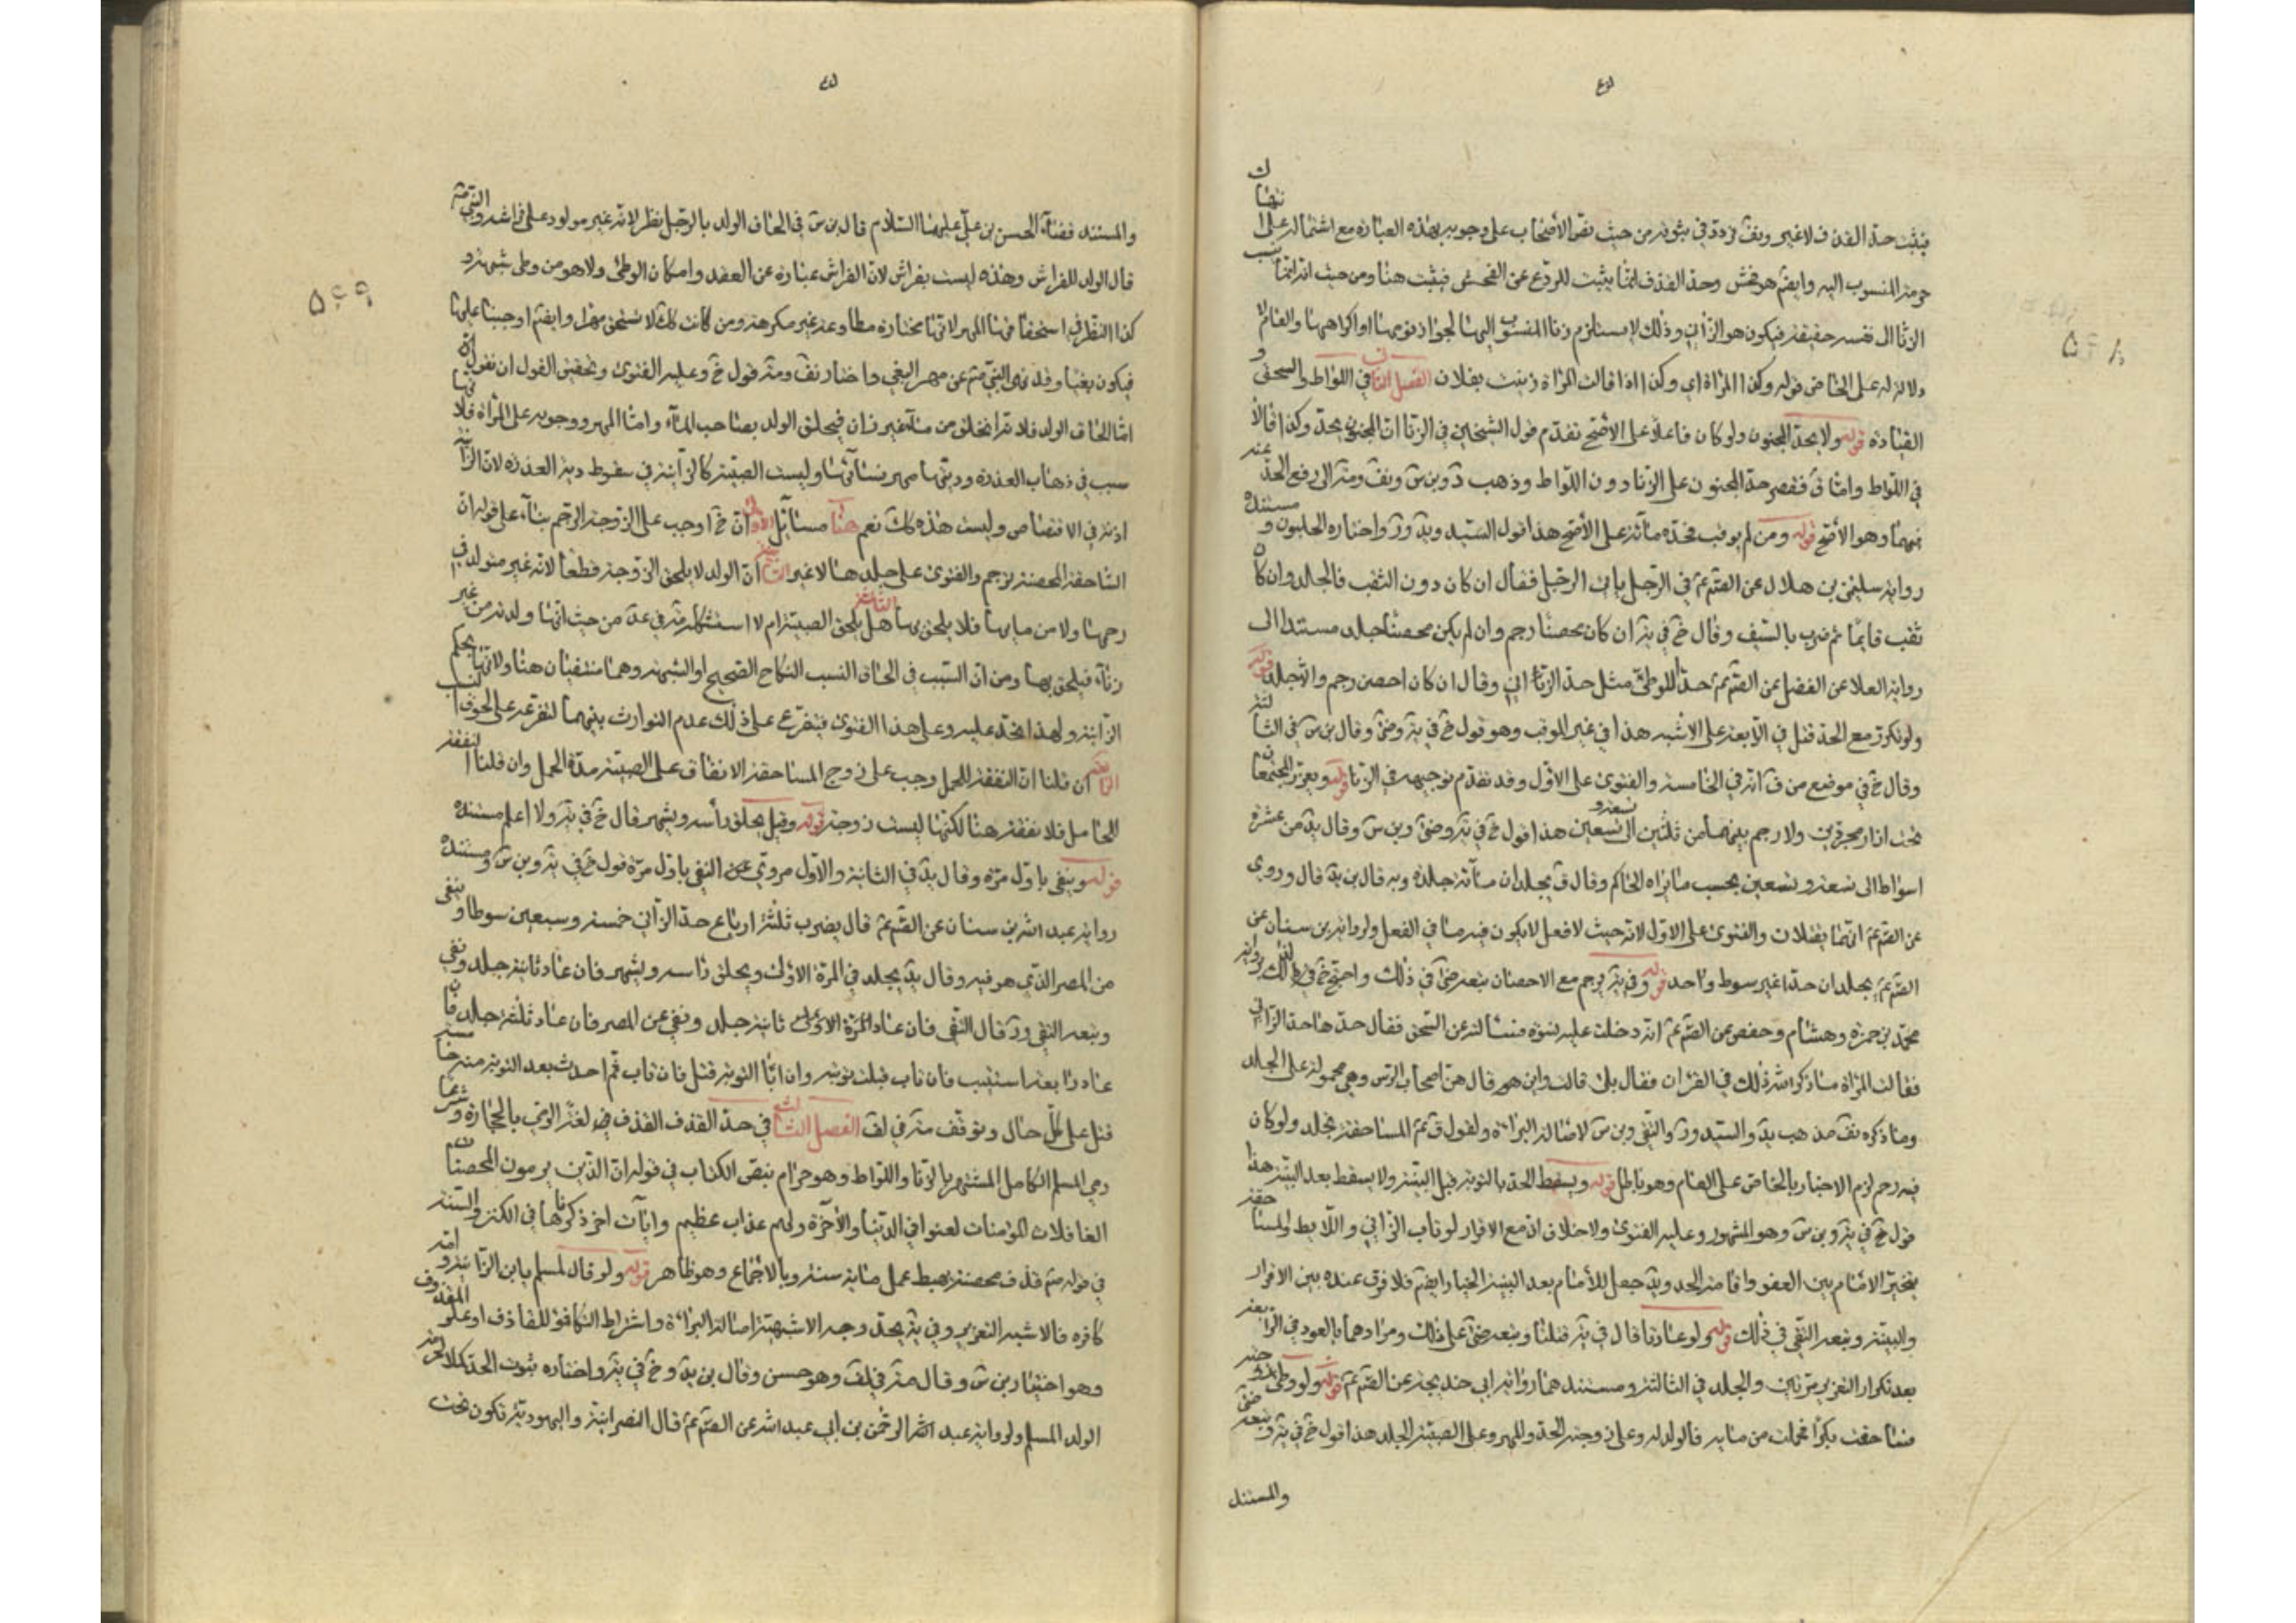 فيثبت حد القذف لا غير وتف تردد في ثبوته من حيث نص الأصحاب على وجوبه بهذه العبارة مع اشتماله على
حرمة المنسوب اليه وايضم هو فحش وحد القذف انما يثبت للردع عن الفحش فيثبت هنا ومن حيث انه انما نسب
الزنا الى نفسه حقيقة فيكون هو الزاني وذلك لا يستلزم زنا المنسوب اليها لجواز نومها او اكراهها والعام لا
دلالة له على الخاص قوله وكذا المراة اي وكذا اذا قالت المراة زنيت بفلان الفصل الثاني في اللواط والسحق و
القيادة قوله ولا يحد المجنون ولو كان فاعلا على الاصح تقدم قول الشيخين في الزنا ان المجنون يحد وكذا قالا
في اللواط واما ق فقصر حد المجنون على الزنا دون اللواط وذهب د وبن س وتف ومنه الى رفع الحد عنه
فيهما وهو الأصح قوله ومن لم يوقب فحده مائة على الأصح هذا قول السيد ويد ور واختاره الحلبون و مستنده
رواية سليمن بن هلال عن الصم عم في الرجل ياتي الرجل فقال ان كان دون الثقب فالجلد وان كان
ثقب قايما ثم ضرب بالسيف وقال خ في ية ان كان محصنا رجم وان لم يكن محصنا جلد مستندا الى
رواية العلا عن الفضل عن الصم عم حد اللوطي مثل حد الزاني وقال ان كان احصن رجم والا جلد قوله
ولو تكرر مع الحد قتل في الرابعة على الاشبه هذا في غير الموقب وهو قول خ في ية وضى وقال بن س في الثالثة
وقال خ في موضع من ف انه في الخامسة والفتوى على الاول وقد تقدم توجيهه في الزنا قوله ويعزر المجتمعان
تحت ازار مجردين ولا رحم بينهما من ثلثين الى تسعة وتسعين هذا قول خ في ية وضى وبن س وقال يد من عشرة
اسواط الى تسعة وتسعين بحسب ما يراه الحاكم وقال ق يجلدان مائة جلدة وبه قال بن يد قال وروى
عن الصم عم انهما يقتلان والفتوى على الاول لانه حيث لا فعل لا يكون فيه ما في الفعل ولرواية بن سنان عن
الصم عم يجلدان حدا غير سوط واحد قوله وفي ية يرجم مع الاحصان تبعه ضى في ذلك واحتج خ في ذلك برواية
محمد بن حمزة وهشام وحفص عن الصم عم انه دخلت عليه نسوة فسالته عن السحق فقال حدها حد الزاني
فقالت المراة ما ذكر الله ذلك في القران فقال بلى قالت واين هو قال هن اصحاب الرس وهي محمولة على الجلد
وما ذكره تف مذهب يد والسيد ور والتقى وبن س لاصالة البراءة ولقول ق عم المساحقة تجلد ولو كان
فيه رجم لزم الاخبار بالخاص على العام وهو باطل قوله ويسقط الحد بالتوبة قبل البينة ولا يسقط بعد البينة هذا
قول خ في ية وبن س وهو المشهور وعليه الفتوى ولا خلاف ان مع الاقرار لو تاب الزاني واللايط والمساحقة
يتخير الامام بين العفو واقامة الحد ويد جعل للأمام بعد البينة الخيار ايضم فلا فرق عنده بين الاقرار
والبينة وتبعه التقى في ذلك قوله ولو عادتا قال في ية قتلتا وتبعه ضى على ذلك ومرادهما بالعود في الرابعة
بعد تكرار التعزير مرتين والجلد في الثالثة ومستندهما رواية ابي خديجة عن الصم عم قوله ولو وطئ زوجته
فساحقت بكرا فحملت من مائه فالولد له وعلى زوجته الحد والمهر وعلى الصبية الجلد هذا قول خ في ية وتبعه ضى
والمستند
والمستند قضاء الحسن بن علي عليهما السلام قال بن س في الحاق الولد بالرجل نظر لانه غير مولود على فراشه والنبي صم
قال الولد للفراش وهذه ليست بفراش لان الفراش عبارة عن العقد وامكان الوطئ ولا هو من وطى شبهة و
كذا النظر في استحقاقها المهر لانها مختارة مطاوعة غير مكرهة ومن كانت كك لا تستحق مهرا وايضم اوجبنا عليها
فيكون بغيا وقد نهى النبي صم عن مهر البغي واختار تف ومنه قول خ وعليه الفتوى وتحقيق القول ان نقول
اما الحاق الولد فلانه انخلق من ماء غير زان فيلحق الولد بصاحب الماء واما المهر ووجوبه على المراة فلانها
سبب في ذهاب العذرة وديتها مهر نسائها وليست الصبية كالزانية في سقوط دية العذرة لان الزانية
اذنت في الافتضاض وليست هذه كك نعم هنا مسائل الاولى ان خ اوجب على الزوجة الرجم بناء على قوله ان
الساحقة المحصنة ترجم والفتوى على جلدها لا غير الثانية ان الولد لا يلحق الزوجة قطعا لانه غير متولد في
رحمها ولا من مايها فلا يلحق بها الثالثة هل يلحق الصبية ام لا استشكله منه في عد من حيث انها ولدته من غير
زناء فيلحق بها ومن ان السبب في الحاق النسب النكاح الصحيح او الشبهة وهما منتفيان هنا ولانها بحكم
الزانية ولهذا تحد عليه وعلى هذا الفتوى فيتفرع على ذلك عدم التوارث بينهما لتفرعه على لحوق النسب
الرابعة ان قلنا ان النفقة للحمل وجب على زوج المساحقة الانفاق على الصبية مدة الحمل وان قلنا النفقة
للحامل فلا نفقة هنا لكنها ليست زوجة قوله وقيل يحلق راسه ويشهر قال خ في ية ولا اعلم مستنده
قوله وينفى باول مرة وقال يد في الثانية والاول مروي عن النفى باول مرة قول خ في ية وبن س ومستنده
رواية عبد الله بن سنان عن الصم عم قال يضرب ثلثة ارباع حد الزاني خمسة وسبعين سوطا وينفى
من المصر الذي هو فيه وقال يد يجلد في المرة الاولى ويحلق راسه ويشهر فان عاد ثانية جلد ونفي
وتبعه التقى ور قال التقى فان عاد المرة الاولى ثانية جلد ونفي عن المصر فان عاد ثلثة جلد فان
عاد رابعة استتيب فان تاب قبلت توبته وان ابا التوبة قتل فان تاب ثم احدث بعد التوبة منه خامسة
قتل على كل حال وتوقف منه في لف الفصل الثالث في حد القذف القذف في لغة الرمي بالحجارة وشرعا
رمي المسلم الكامل المشتهر بالزنا واللواط وهو حرام بنص الكتاب في قوله ان الذين يرمون المحصنات
الغافلات المؤمنات لعنوا في الدنيا والآخرة ولهم عذاب عظيم وايات اخر ذكرناها في الكنز والسنة
في قوله صم قذف محصنة يحبط عمل ماية سنة وبالاجماع وهو ظاهر قوله ولو قال لمسلم يا بن الزانية وامه
كافرة فالاشبه التعزير وفي ية يحد وجه الاشبهية اصالة البراءة واشتراط التكافؤ للقاذف او علو المقذوف
وهو اختيار بن س وقال منه في لف وهو حسن وقال بن يد وخ في ية واختاره ثبوت الحد كملا لحرمة
الولد المسلم ولرواية عبد الرحمن بن أبي عبد الله عن الصم عم قال النصرانية واليهودية تكون تحت